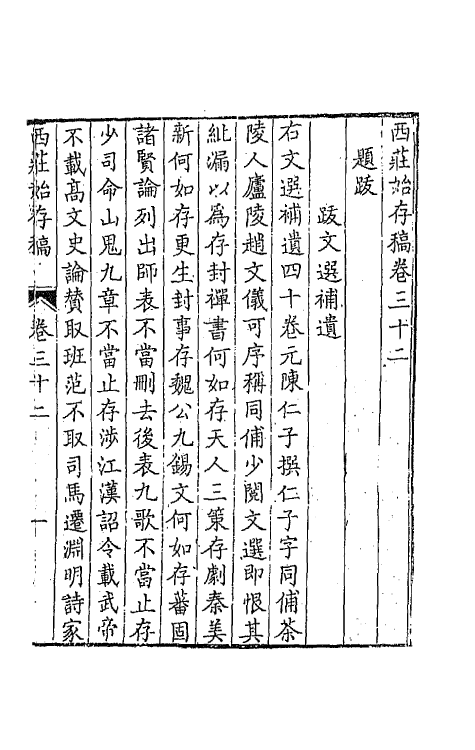 西莊始存稿卷三十二
題跋
跋文選補遺
右文選補遺四十卷元陳仁子撰仁子字同俌茶
陵人廬陵趙文儀可序稱同俌少閱文選即恨其
紕漏以爲存封禪書何如存天人三策存劇秦美
新何如存更生封事存魏公九錫文何如存蕃固
諸賢論列出師表不當刪去後表九歌不當止存
少司命山鬼九章不當止存涉江漢詔令載武帝
不載高文史論贊取班范不取司馬遷淵明詩家
西莊始存稿 卷三十二 一